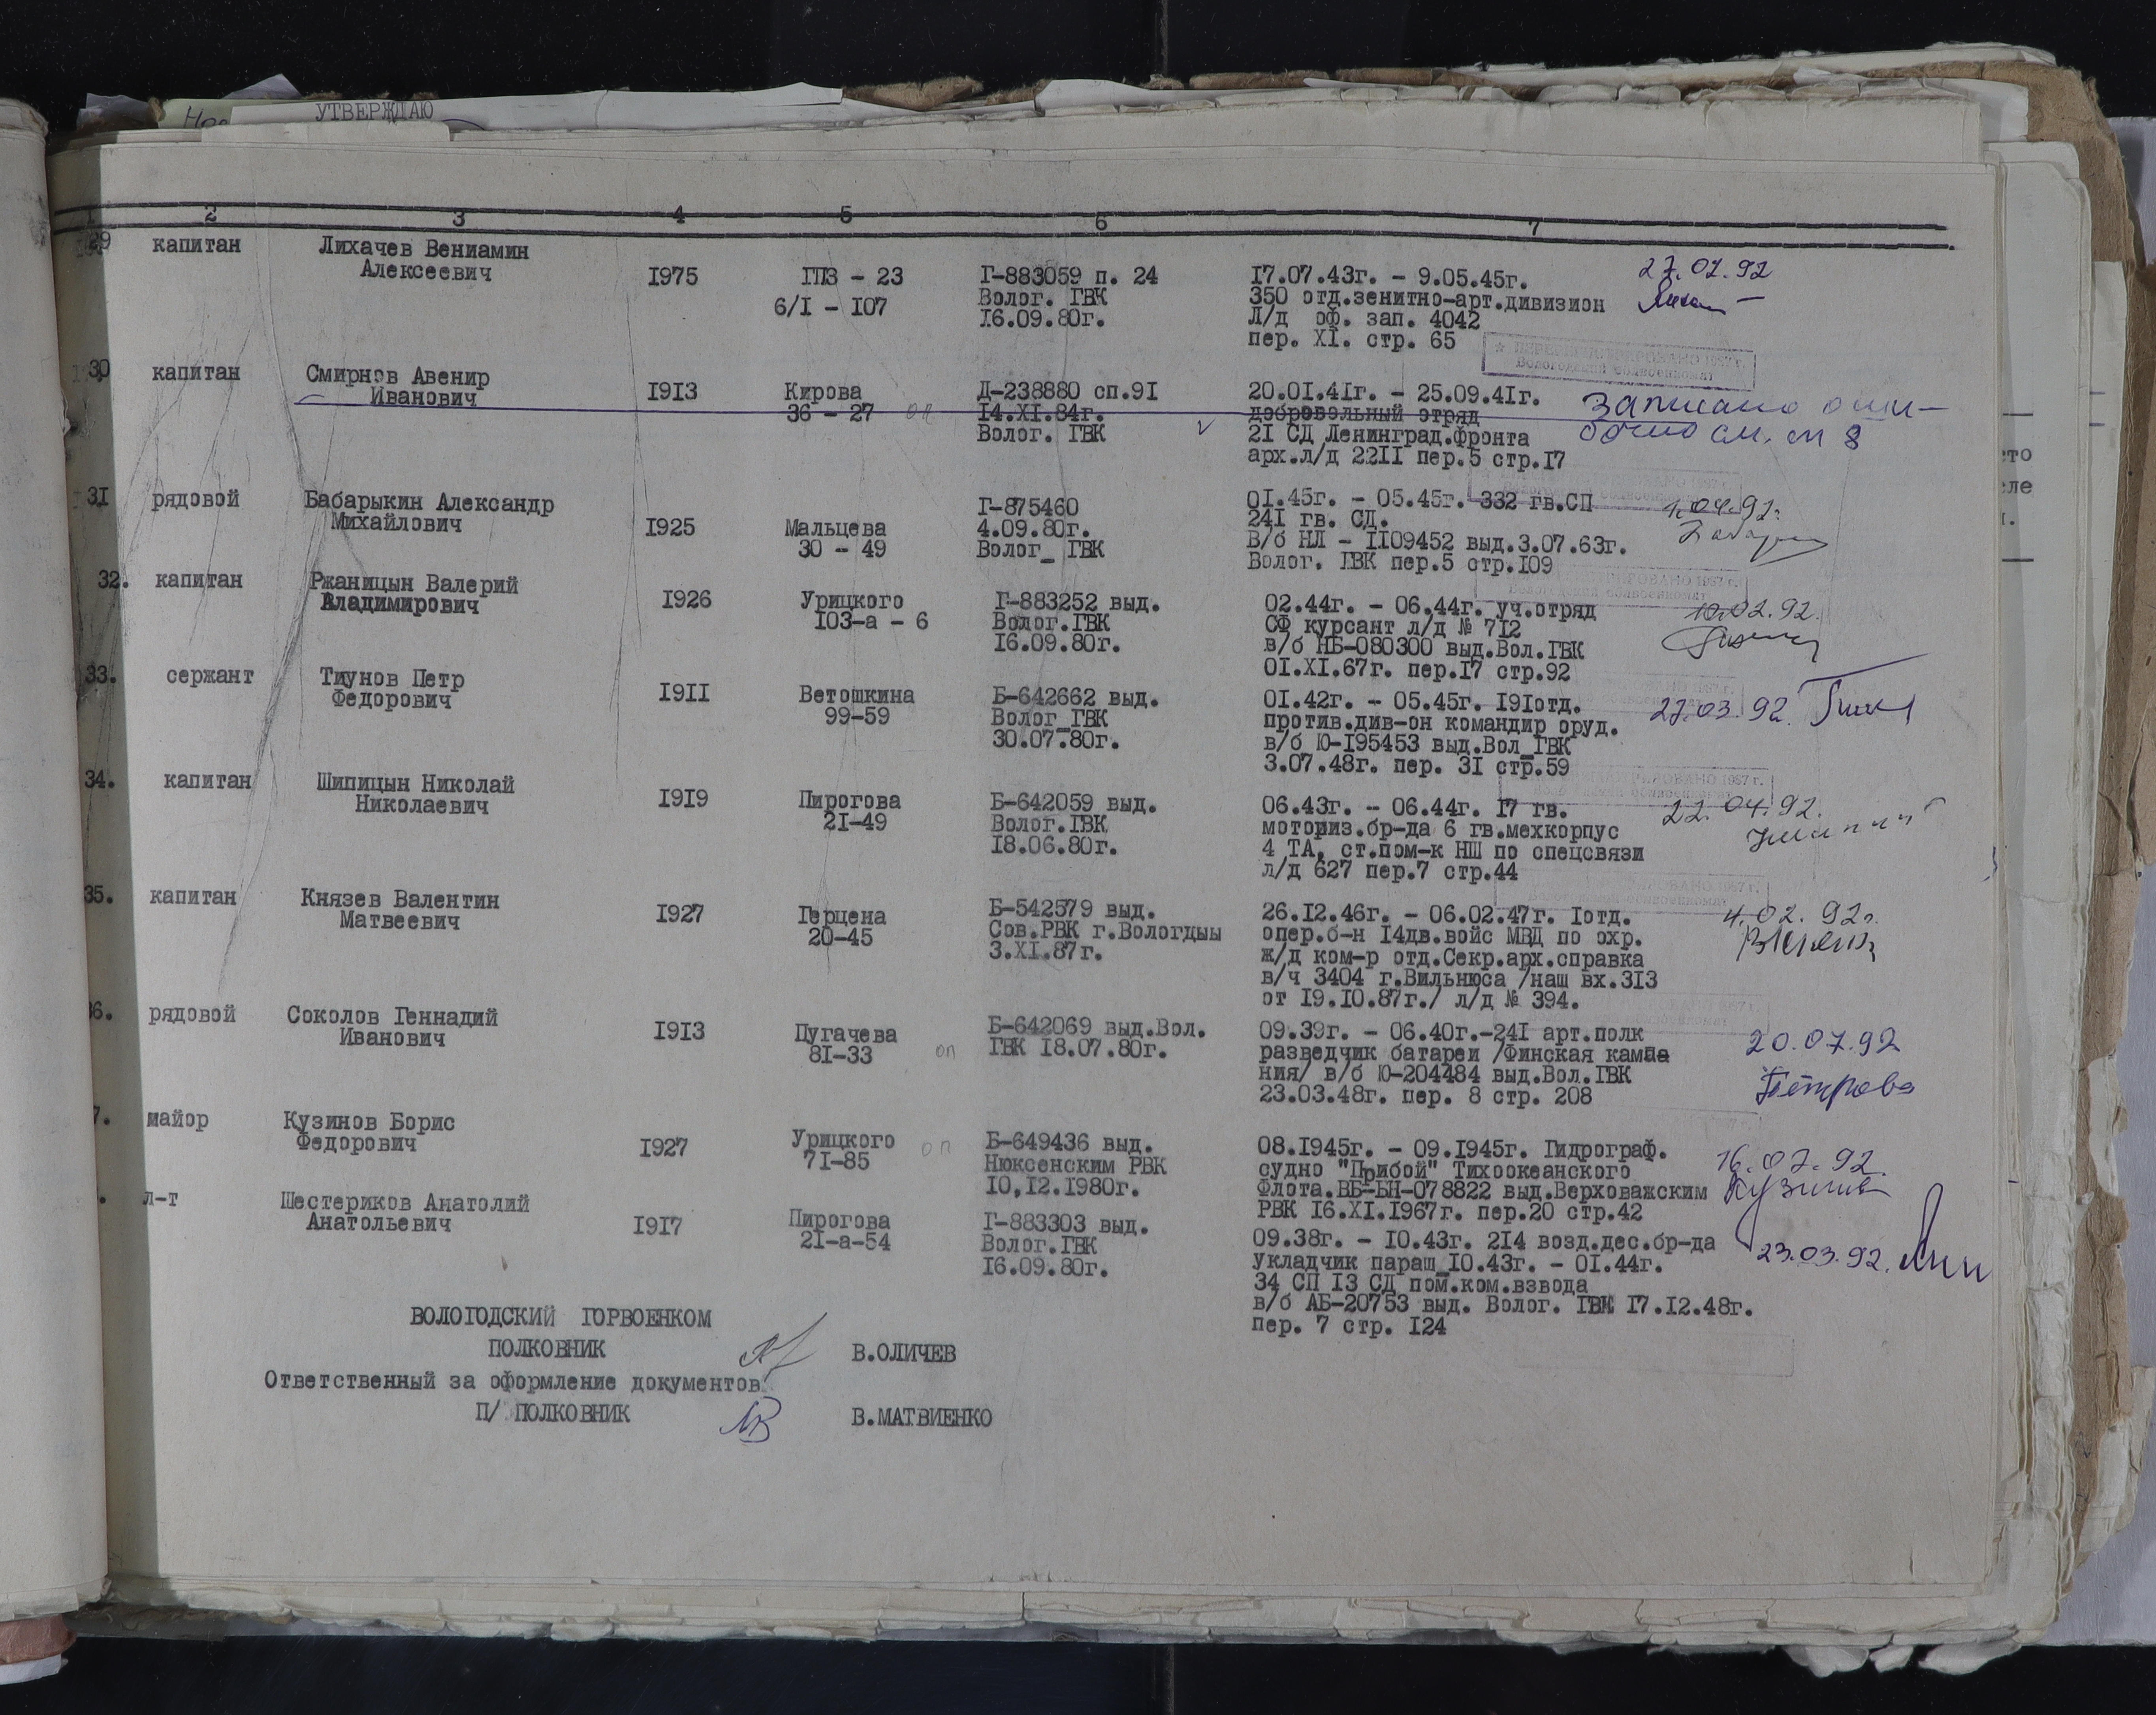 УТВЕРЖДАЮ
2 3 4 5 6 7
29 капитан Лихачев Вениамин
Алексеевич 1975 ГПЗ - 23 Г-883059 п. 24 17.07.43г. - 9.05.45г. 27.02.92
6/1 - 107 Волог. ГВК 350 отд.зенитно-арт.дивизион
16.09.80г. Л/д оф. зап. 4042
пер. XI. стр. 65
30 капитан Смирнов Авенир
Иванович 1913 Кирова Д-238880 сп.91 20.01.41г. - 25.09.41г. Записано оши-
36 - 27 оп 14.XI.84г. добровольный отряд бочно см. ст 8
Волог. ГВК 21 СД Ленинград.фронта
арх.л/д 2211 пер.5 стр.17
31 рядовой Бабарыкин Александр Г-875460 01.45г. - 05.45г. 332 гв.СП 1.04.92г.
Михайлович 1925 Мальцева 4.09.80г. 241 гв. СД.
30 - 49 Волог_ ГВК В/б НЛ - 1109452 выд.3.07.63г.
Волог. ГВК пер.5 стр.109
32. капитан Ржаницын Валерий
Владимирович 1926 Урицкого Г-883252 выд. 02.44г. - 06.44г. уч.отряд 10.02.92.
103-а - 6 Волог.ГВК СФ курсант л/д № 712
16.09.80г. в/б НБ-080300 выд.Вол.ГВК
01.XI.67г. пер.17 стр.92
33. сержант Тиунов Петр
Федорович 1911 Ветошкина Б-642662 выд. 01.42г. - 05.45г. 191отд. 27.03.92.
99-59 Волог_ГВК против.див-он командир оруд.
30.07.80г. в/б Ю-195453 выд.Вол_ГВК
3.07.48г. пер. 31 стр.59
34. капитан Шипицын Николай
Николаевич 1919 Пирогова Б-642059 выд. 06.43г. - 06.44г. 17 гв. 22.04.92.
21-49 Волог.ГВК моториз.бр-да 6 гв.мехкорпус
18.06.80г. 4 ТА, ст.пом-к НШ по спецсвязи
л/д 627 пер.7 стр.44
35. капитан Князев Валентин
Матвеевич 1927 Герцена Б-542579 выд. 26.12.46г. - 06.02.47г. 1отд. 4.02.92г.
20-45 Сов.РВК г.Вологдыы опер.б-н 14дв.войс МВД по охр.
3.XI.87г. ж/д ком-р отд.Секр.арх.справка
в/ч 3404 г.Вильнюса /наш вх.313
от 19.10.87г./ л/д № 394.
6. рядовой Соколов Геннадий
Иванович 1913 Пугачева Б-642069 выд.Вол. 09.39г. - 06.40г.-241 арт.полк 20.07.92
81-33 оп ГВК 18.07.80г. разведчик батареи /Финская кампа
ния/ в/б Ю-204484 выд.Вол.ГВК Петрова
23.03.48г. пер. 8 стр. 208
7. майор Кузинов Борис
Федорович 1927 Урицкого оп Б-649436 выд. 08.1945г. - 09.1945г. Гидрограф. 16.07.92.
71-85 Нюксенским РВК судно "Прибой" Тихоокеанского
10,12.1980г. Флота.ВБ-БН-078822 выд.Верховажским
РВК 16.XI.1967г. пер.20 стр.42
. л-т Шестериков Анатолий
Анатольевич 1917 Пирогова Г-883303 выд. 09.38г. - 10.43г. 214 возд.дес.бр-да 23.03.92.
21-а-54 Волог.ГВК укладчик параш_10.43г. - 01.44г.
16.09.80г. 34 СП 13 СД пом.ком.взвода
в/б АБ-20753 выд. Волог. ГВК 17.12.48г.
пер. 7 стр. 124
ВОЛОГОДСКИЙ ГОРВОЕНКОМ
ПОЛКОВНИК В.ОЛИЧЕВ
Ответственный за оформление документов
П/ ПОЛКОВНИК В.МАТВИЕНКО